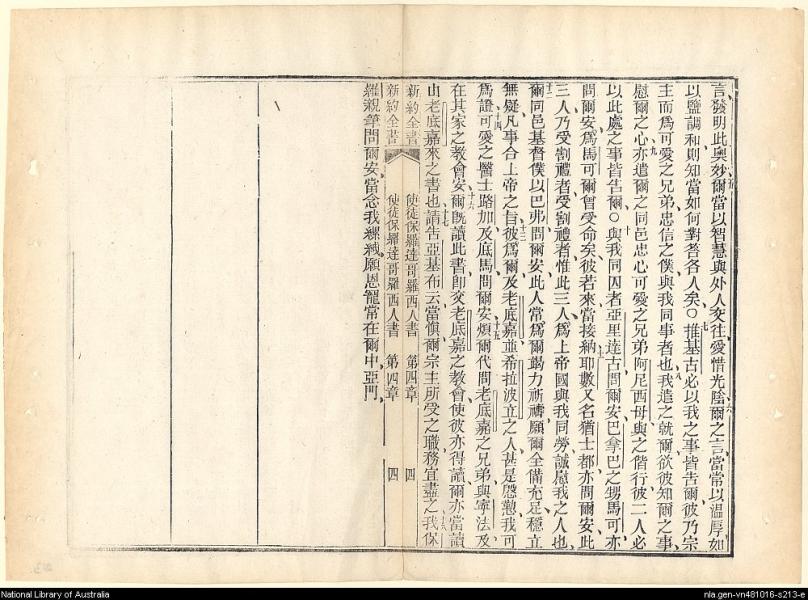 言發明此奧妙爾當以智慧與外人交往愛惜光陰爾之言當常以溫厚如
以鹽調和則知當如何對答各人矣○推基古必以我之事皆告爾彼乃宗
主而為可愛之兄弟忠信之僕與我同事者也我遣之就爾欲彼知爾之事
慰爾之心亦遣爾之同邑忠心可愛之兄弟阿尼西母與之偕行彼二人必
以此處之事皆告爾○與我同囚者亞里達古問爾安巴拿巴之甥馬可亦
問爾安為馬可爾曾受命矣彼若來當接納耶數又名猶士都亦問爾安此
三人乃受割禮者受割禮者惟此三人為上帝國與我同勞誠慰我之人也
爾同邑基督僕以巴弗問爾安此人常為爾竭力祈禱願爾全備充足穩立
無疑凡事合上帝之旨彼為爾及老底嘉並希拉波立之人甚是慇懃我可
為證可愛之醫士路加及底馬問爾安煩爾代問老底嘉之兄弟與寧法及
在其家之教會安爾既讀此書即交老底嘉之教會使彼亦得讀爾亦當讀
由老底嘉來之書也請告亞基布云當慎爾宗主所受之職務宜盡之我保
新約全書 使徒保羅達哥羅西人書 第四章 四
新約全書 使徒保羅達哥羅西人書 第四章 四
羅親筆問爾安當念我縲絏願恩寵常在爾中亞門
National Library of Australia
nla.gen-vn481016-s213-e